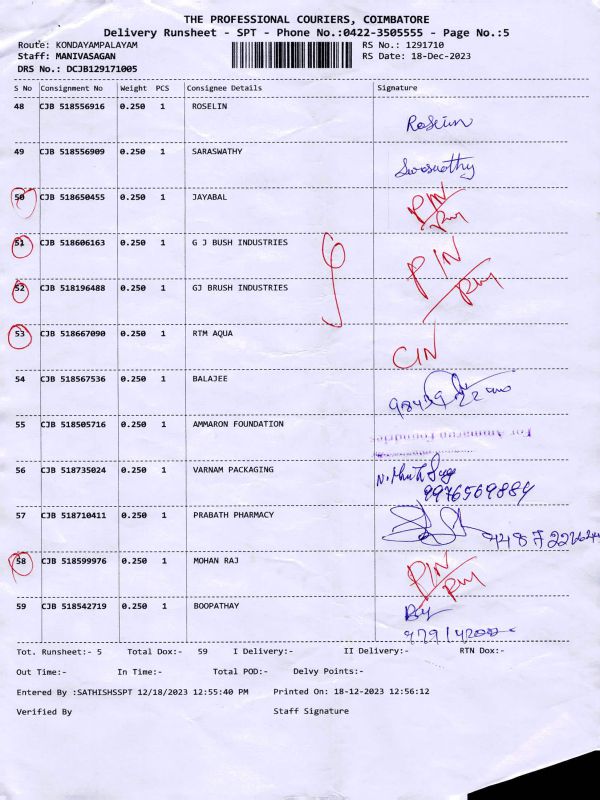 THE PROFESSIONAL COURIERS, COIMBATORE
Delivery Runsheet - SPT - Phone No.:0422-3505555 - Page No.:5
Route: KONDAYAMPALAYAM RS No.: 1291710
Staff: MANIVASAGAN RS Date: 18-Dec-2023
DRS No.: DCJB129171005
S No Consignment No Weight PCS Consignee Details Signature
48 CJB 518556916 0.250 1 ROSELIN Roselin
49 CJB 518556909 0.250 1 SARASWATHY Saraswathy
50 CJB 518650455 0.250 1 JAYABAL PIN
51 CJB 518606163 0.250 1 G J BUSH INDUSTRIES PIN
52 CJB 518196488 0.250 1 GJ BRUSH INDUSTRIES
53 CJB 518667090 0.250 1 RTM AQUA CIN
54 CJB 518567536 0.250 1 BALAJEE
55 CJB 518505716 0.250 1 AMMARON FOUNDATION
56 CJB 518735024 0.250 1 VARNAM PACKAGING
9976569884
57 CJB 518710411 0.250 1 PRABATH PHARMACY
58 CJB 518599976 0.250 1 MOHAN RAJ PIN
59 CJB 518542719 0.250 1 BOOPATHAY
Tot. Runsheet:- 5 Total Dox:- 59 I Delivery:- II Delivery:- RTN Dox:-
Out Time:- In Time:- Total POD:- Delvy Points:-
Entered By :SATHISHSSPT 12/18/2023 12:55:40 PM Printed On: 18-12-2023 12:56:12
Verified By Staff Signature